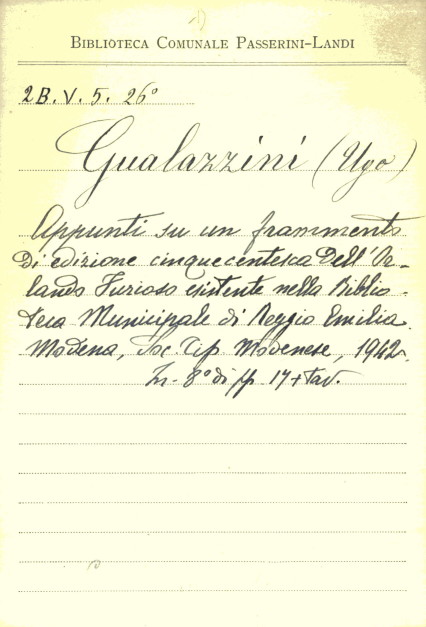 BIBLIOTECA COMUNALE PASSERINI-LANDI
2B. V. 5. 26°
Gualazzini (Ugo)
Appunti su un frammento
di edizione cinquecentesca dell'Or-
lando Furioso esistente nella Biblio-
teca Municipale di Reggio Emilia.
Modena, Soc. Tip. Modenese, 1942.
In-8° di pp. 17 + tav.